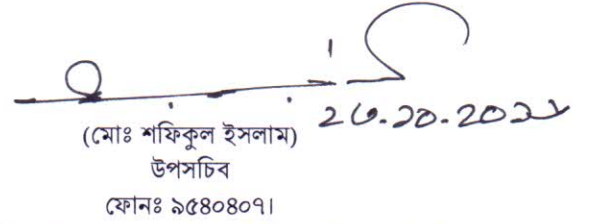 ২৩.১০.২০২১
(মোঃ শফিকুল ইসলাম)
উপসচিব
ফোনঃ ৯৫৪০৪০৭।